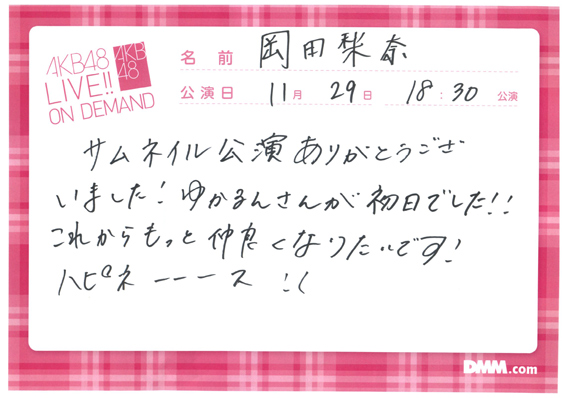 AKB48
LIVE!!
ON DEMAND
AKB
48
名前 岡田梨奈
公演日 11月 29日 18:30 公演
サムネイル公演ありがとうござ
いました!ゆかるんさんが初日でした!!
これからもっと仲良くなりたいです!
ハピネーーース !!
DMM.com